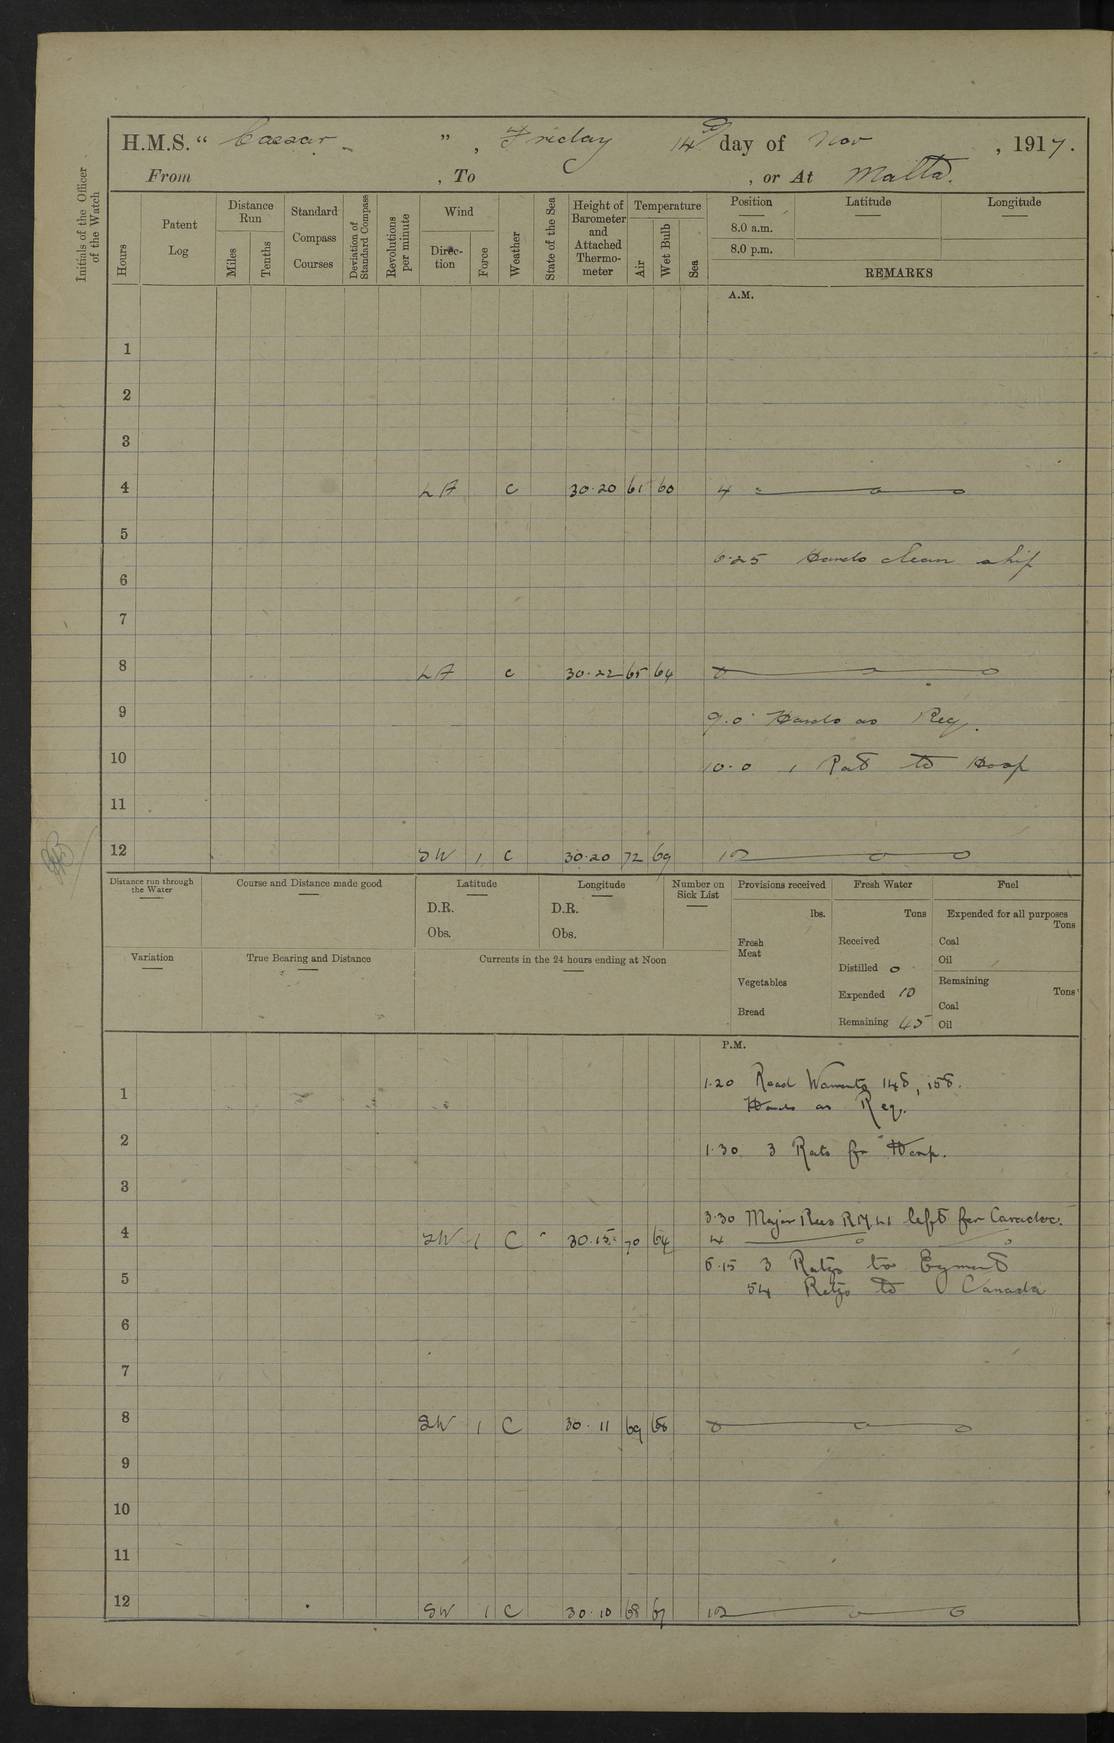 H.M.S. “ Caesar ” , Friday 14th day of Nov , 1917.
From , To , or At Malta.
Initials of the Officer of the Watch
Hours
Patent Log
Distance Run
Miles
Tenths
Standard Compass Courses
Deviation of Standard Compass
Revolutions per minute
Wind
Direction
Force
Weather
State of the Sea
Height of Barometer and Attached Thermometer
Temperature
Air
Wet Bulb
Sea
Position Latitude Longitude
8.0 a.m.
8.0 p.m.
REMARKS
A.M.
1
2
3
4 LA C 30.20 61 60 4
5
6.25 Hands clean ship
6
7
8 LA c 30.22 65 64 8
9
9.0 Hands as Req.
10
10.0 1 Rat to Hosp
11
12 SW 1 C 30.20 72 69 12
Distance run through the Water
Course and Distance made good
Latitude
D.R.
Obs.
Longitude
D.R.
Obs.
Number on Sick List
Provisions received
lbs.
Fresh Meat
Vegetables
Bread
Fresh Water
Tons
Received
Distilled 0
Expended 10
Remaining 45
Fuel
Expended for all purposes
Tons
Coal
Oil
Remaining
Tons
Coal
Oil
Variation
True Bearing and Distance
Currents in the 24 hours ending at Noon
P.M.
1.20 Read Warrants 148, 158.
1
Hands as Req.
2
1.30 3 Rats fr Hosp.
3
3.30 Major Rees RMLI left for Caradoc.
4 SW 1 C 30.15 70 64 4
5.15 3 Ratgs to Egmont
5
54 Ratgs to Canada
6
7
8 SW 1 C 30.11 69 68 8
9
10
11
12 SW 1 C 30.10 68 67 12